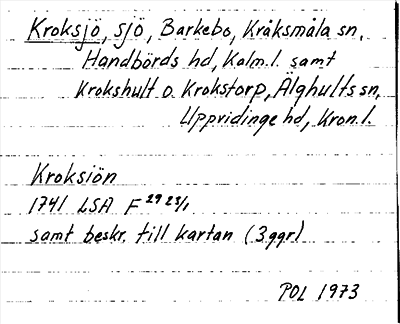 Kroksjö, sjö, Barkebo, Kråksmåla sn,
Handbörds hd, Kalm. l. samt
Krokshult o. Krokstorp, Älghults sn,
Uppvidinge hd, Kron. l.
Kroksiön
1741 LSA F 29 23/1
samt beskr. till kartan (3 ggr)
POL 1973